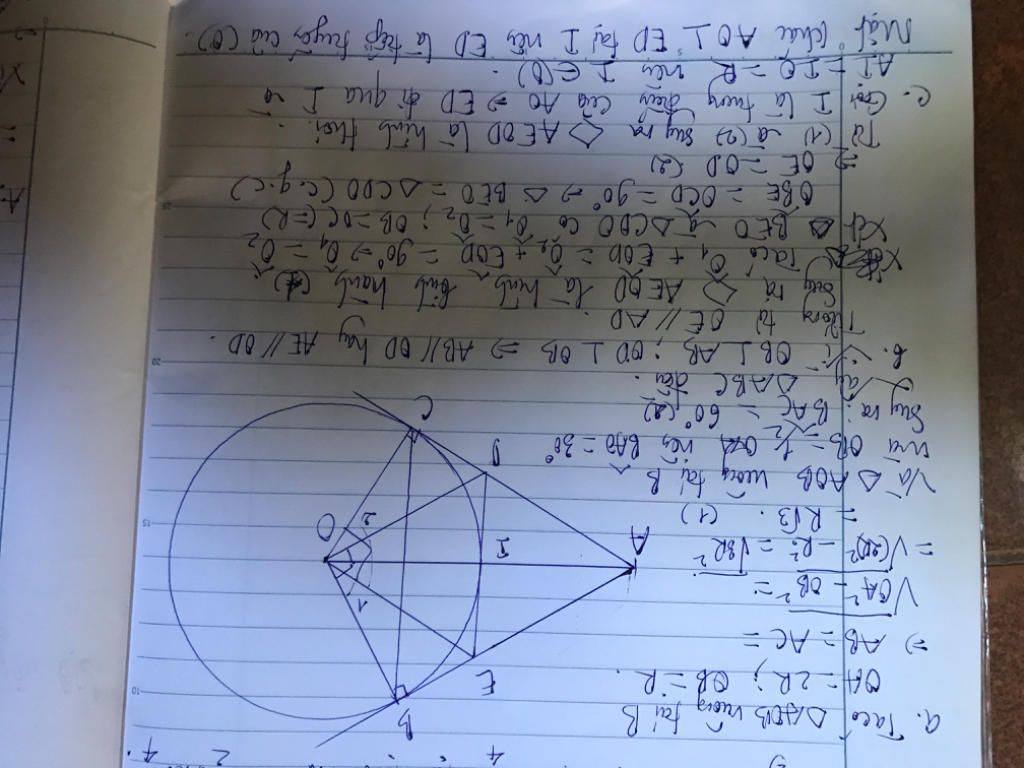 a. Ta có ΔAOB vuông tại B
OA = 2R ; OB = R.
⇒ AB = AC =
√OA² - OB² =
= √(2R)² - R² = √3R²
= R√3. (1)
Và Δ AOB vuông tại B
mà OB = ½ OA nên BÂO = 30°
Suy ra: BÂC = 60° (2)
ΔABC đều.
b. Vì OB ⊥ AB ; OD ⊥ OB ⇒ AB // OD hay AE // OD.
Tương tự OE // AD.
Suy ra ◇ AEOD là hình bình hành (1)
Ta có Ô1 + EÔD = Ô2 + EÔD = 90° ⇒ Ô1 = Ô2
Xét Δ BEO và ΔCDO có Ô1 = Ô2 ; OB = OC (= R)
OBE = OCD = 90° ⇒ Δ BEO = Δ CDO (c.g.c)
⇒ OE = OD (2)
Từ (1) và (2) suy ra ◇ AEOD là hình thoi.
c. Gọi I là trung điểm của AO ⇒ ED đi qua I và
AI = IO = R nên I ∈ (O).
Mặt khác AO ⊥ ED tại I nên ED là tiếp tuyến của (O).
B
E
A
I
O
1
2
D
C
10
15
20
4
2
4.